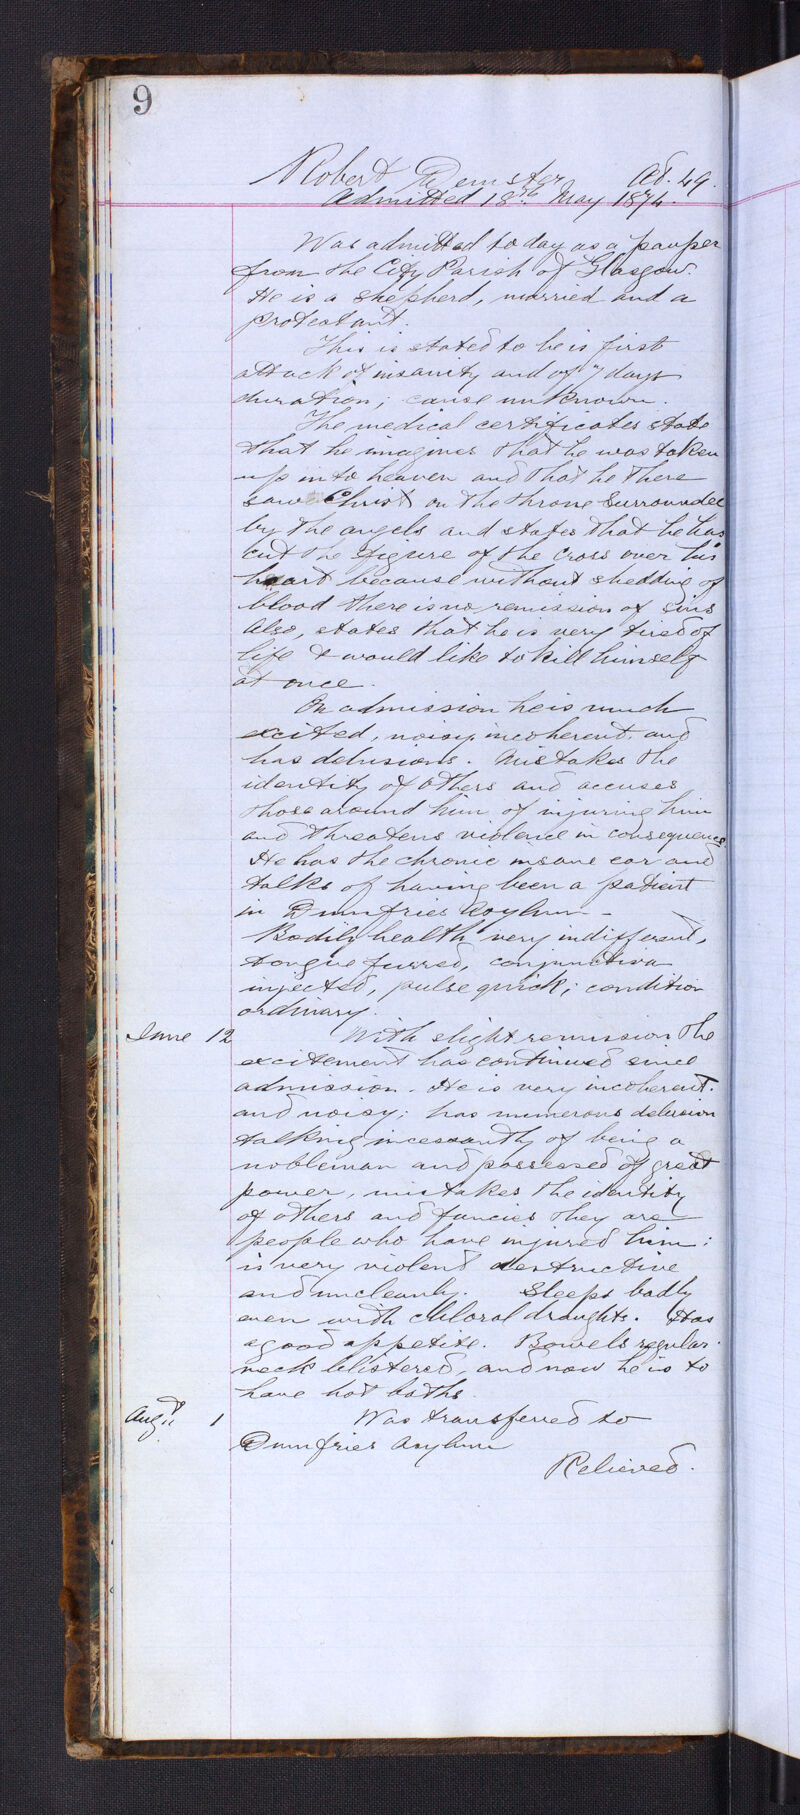 9
Robert Dempster Aet. 49.
Admitted 18th May 1874.
Was admitted to day as a pauper
from the City Parish of Glasgow.
He is a shepherd, married and a
protestant.
This is stated to be is first
attack of insanity and of 7 days
duration; cause unknown.
The medical certificates state
that he imagines that he was taken
up into heaven and that he there
saw Christ on the throne surrounded
by the angels and states that he has
cut the figure of the cross over his
heart because without shedding of
blood there is no remission of sins
Also, states that he is very tired of
life & would like to kill himself
at once.
On admission he is much
excited, noisy, incoherent and
has delusions. Mistakes the
identity of others and accuses
those around him of injuring him
and threatens violence in consequence
He has the chronic insane ear and
talks of having been a patient
in Dumfries Asylum -
Bodily health very indifferent,
tongue furred, conjunctiva
injected, pulse quick; condition
ordinary.
June 12 With slight remission the
excitement has continued since
admission. He is very incoherent
and noisy; has numerous delusion
talking incessantly of being a
nobleman and possessed of great
power, mistakes the identity
of others and fancies they are
people who have injured him;
is very violent destructive
and uncleanly. Sleeps badly
even with chloral draughts. Has
a good appetite. Bowels regular.
neck blistered, and now he is to
have hot baths.
Augt. 1 Was transferred to
Dumfries Asylum
Relieved.